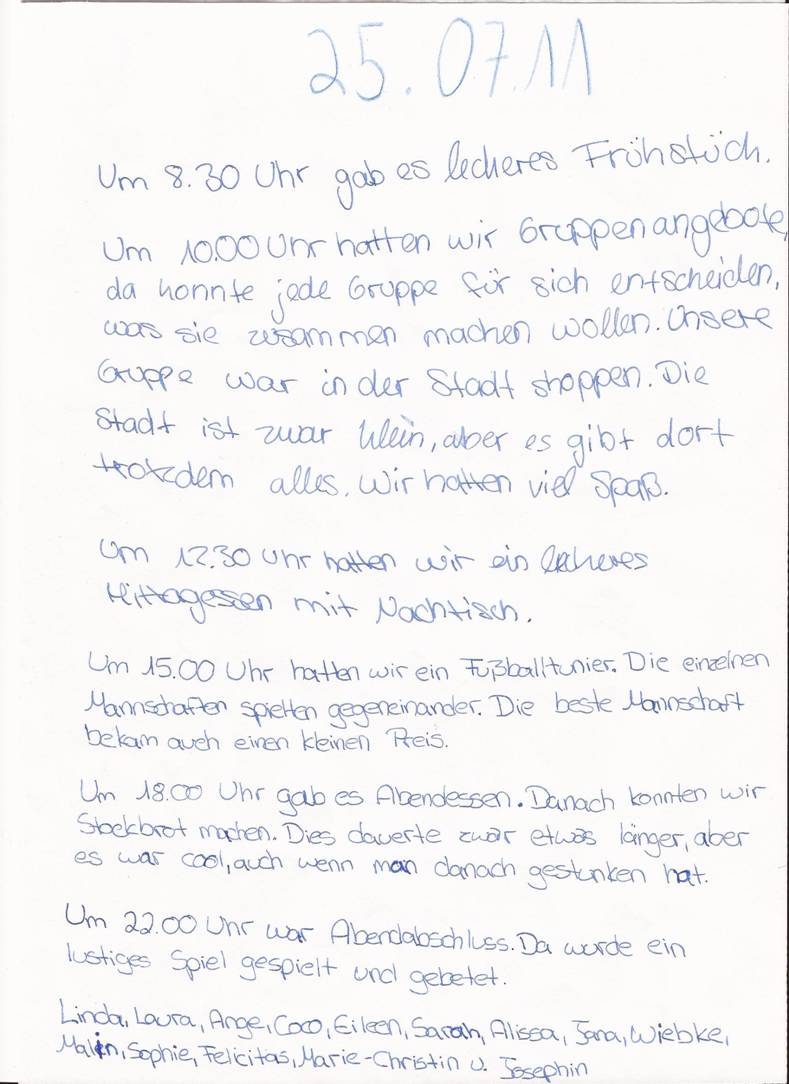 25.07.11
Um 8.30 Uhr gab es leckeres Frühstück.
Um 10.00 Uhr hatten wir Gruppenangebote,
da konnte jede Gruppe für sich entscheiden,
was sie zusammen machen wollen. Unsere
Gruppe war in der Stadt shoppen. Die
Stadt ist zwar klein, aber es gibt dort
trotzdem alles. Wir hatten viel Spaß.
Um 12.30 Uhr hatten wir ein leckeres
Mittagessen mit Nachtisch.
Um 15.00 Uhr hatten wir ein Fußballtunier. Die einzelnen
Mannschaften spielten gegeneinander. Die beste Mannschaft
bekam auch einen kleinen Preis.
Um 18.00 Uhr gab es Abendessen. Danach konnten wir
Stockbrot machen. Dies dauerte zwar etwas länger, aber
es war cool, auch wenn man danach gestunken hat.
Um 22.00 Uhr war Abendabschluss. Da wurde ein
lustiges Spiel gespielt und gebetet.
Linda, Laura, Ange, Coco, Eileen, Sarah, Alissa, Jana, Wiebke,
Malin, Sophie, Felicitas, Marie-Christin u. Josephin